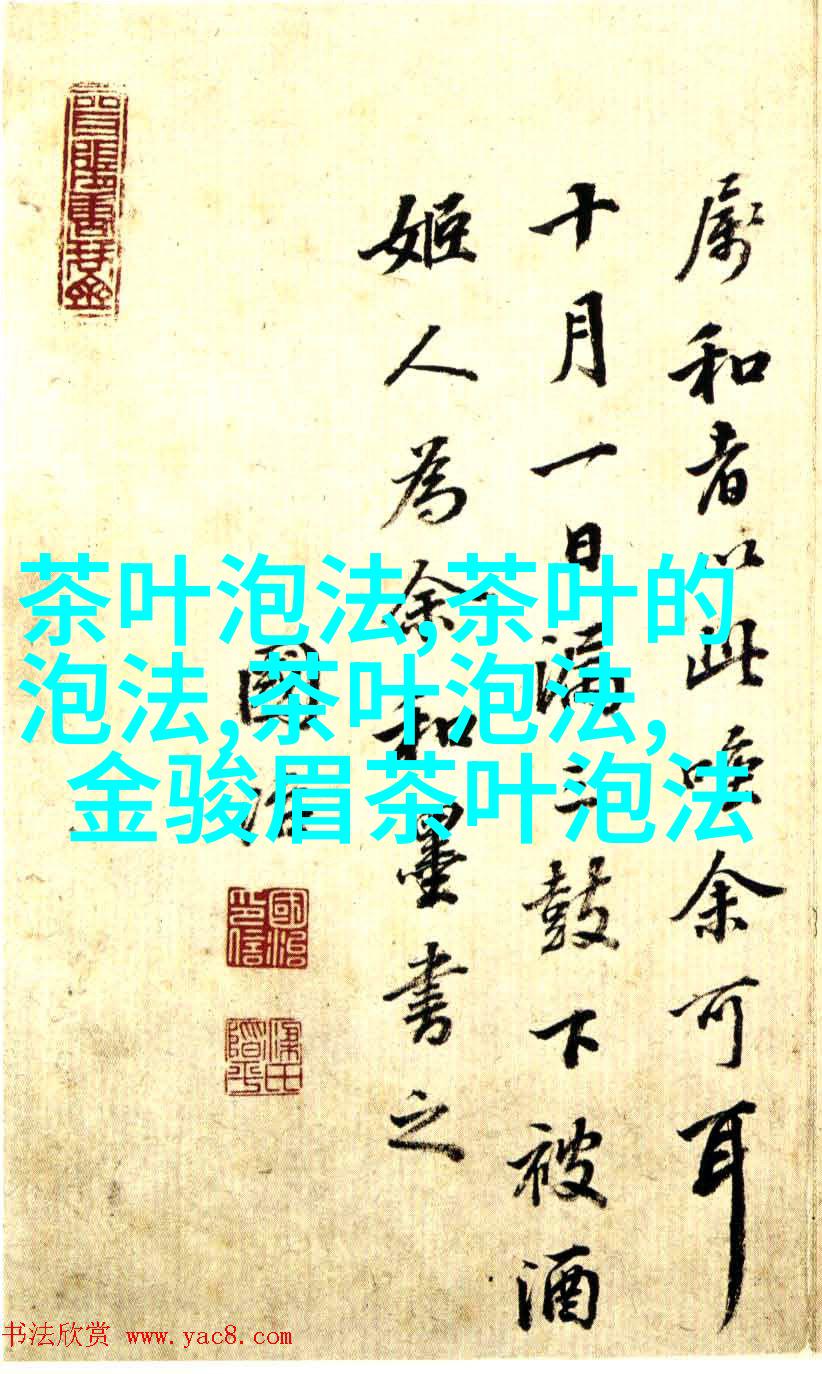 属和者以此唾余可耳
十月一日漏三鼓下被酒
姬人為余和墨書之
國治
國治印信
茶叶泡法,茶叶的
泡法,茶叶泡法,
金骏眉茶叶泡法
书法欣赏 www.yac8.com